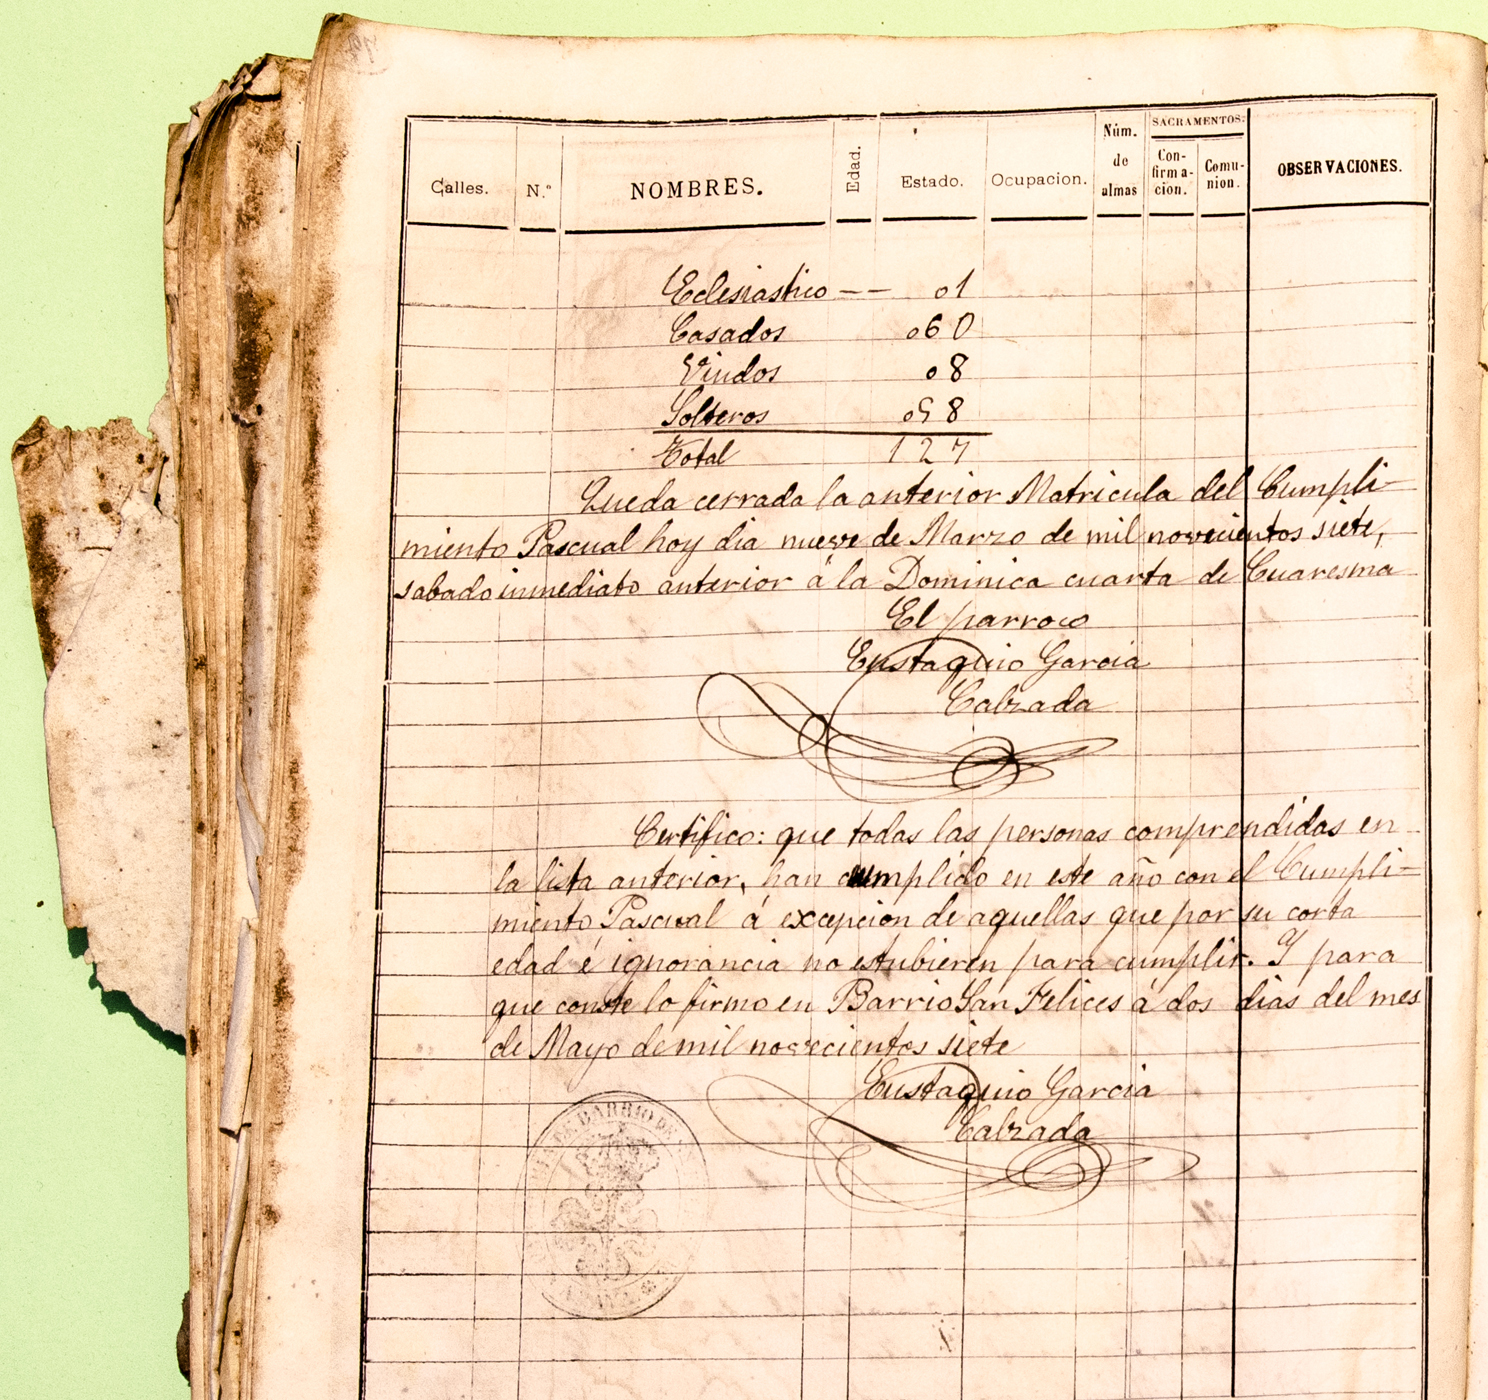 Calles. N.º NOMBRES. Edad. Estado. Ocupacion. Núm. de almas SACRAMENTOS: Con-firma-cion. Comu-nion. OBSERVACIONES.
Eclesiastico -- 01
Casados 060
Viudos 08
Solteros 058
Total 127
Queda cerrada la anterior Matricula del Cumpli-
miento Pascual hoy dia nueve de Marzo de mil novecientos siete,
sabado inmediato anterior á la Dominica cuarta de Cuaresma
El parroco
Eustaquio Garcia
Calzada
Certifico: que todas las personas comprendidas en
la lista anterior, han cumplido en este año con el Cumpli-
miento Pascual á excepcion de aquellas que por su corta
edad é ignorancia no estubieren para cumplir. Y para
que conste lo firmo en Barrio San Felices á dos dias del mes
de Mayo de mil novecientos siete
Eustaquio Garcia
Calzada
BARRIO DE